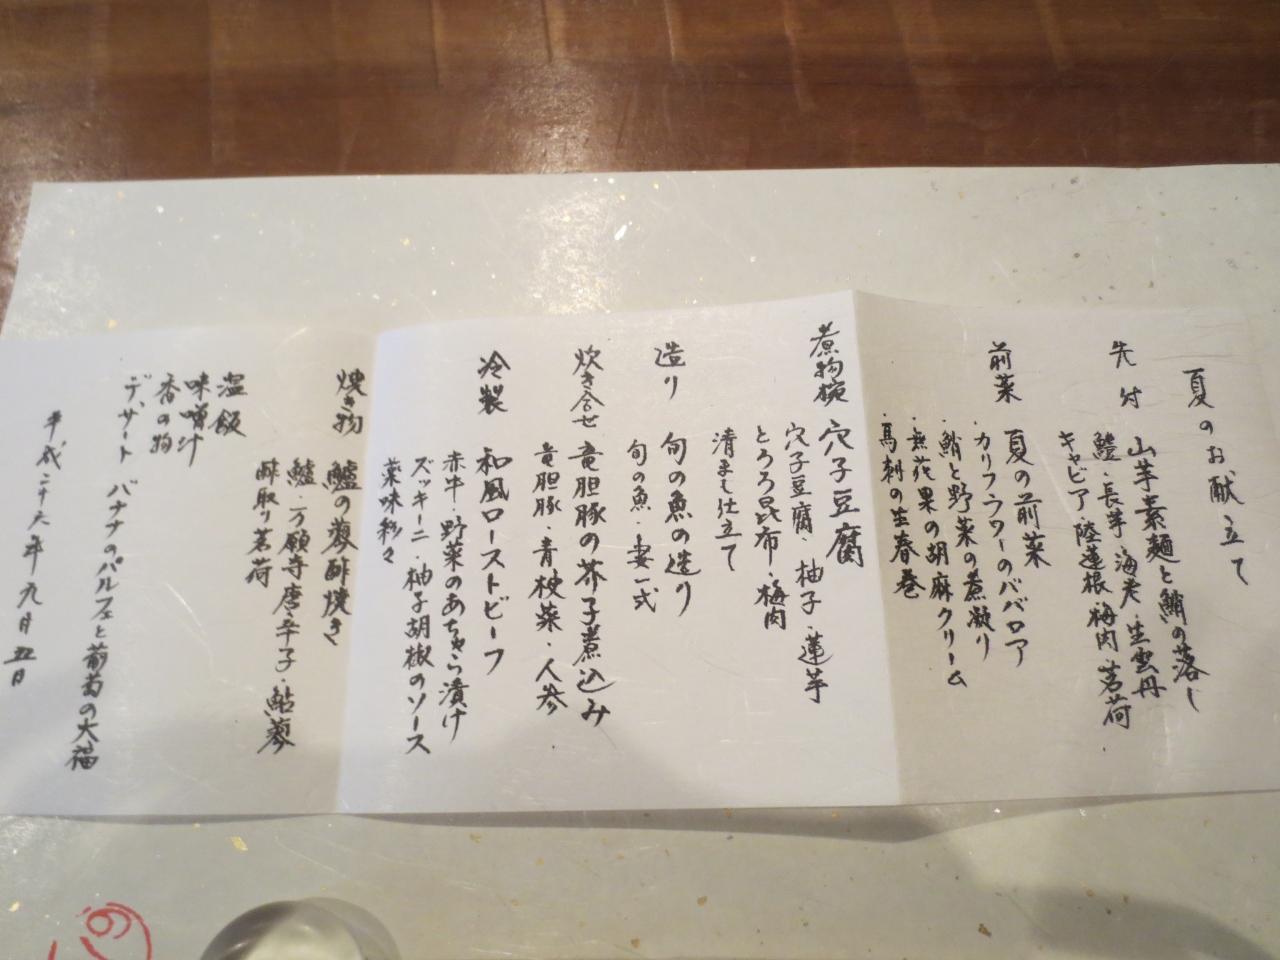 夏のお献立て
先付 山芋素麺と鮹の落し
鱧・長芋・海老・生雲丹
キャビア 陸蓮根 梅肉 茗荷
前菜 夏の前菜
・カリフラワーのババロア
・鮹と野菜の煮凝り
・無花果の胡麻クリーム
・馬刺の生春巻
煮物椀 穴子豆腐
穴子豆腐・柚子・蓮芋
とろろ昆布・梅肉
清まし仕立て
造り 旬の魚の造り
旬の魚・妻一式
炊き合せ 竜胆豚の芥子煮込み
竜胆豚・青梗菜・人参
冷製 和風ローストビーフ
赤牛・野菜のあちゃら漬け
ズッキーニ・柚子胡椒のソース
薬味彩々
焼き物 鱸の蓼酢焼き
鱸・万願寺唐辛子・鮎蓼
酢取り茗荷
温飯
味噌汁
香の物
デザート バナナのパルフェと葡萄の大福
平成二十六年九月五日
の